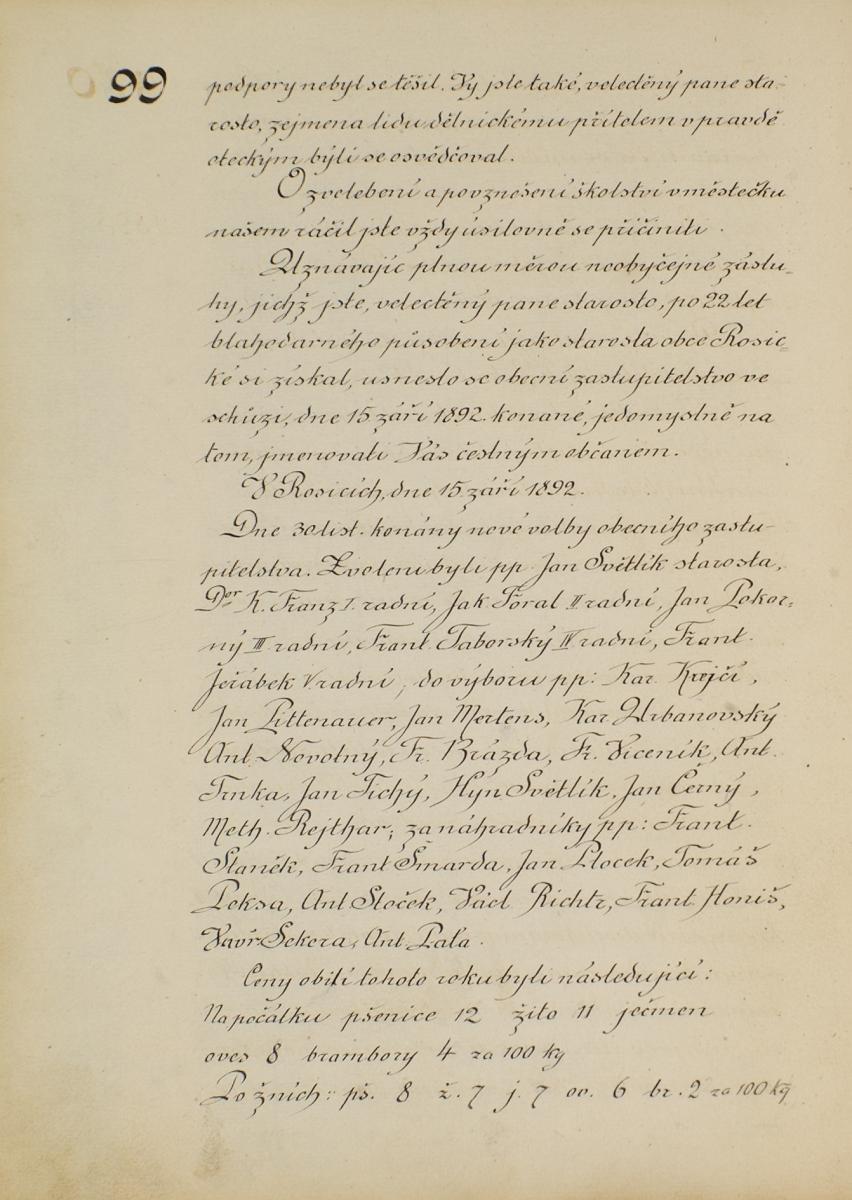 99
podpory nebyl se těšil. Vy jste také, velectěný pane sta-
rosto, zejmena lidu dělnickému přítelem v pravdě
otcckým býti se osvědčoval.
O zvelebení a povznešení školství v městečku
našem ráčil jste vždy úsilovně se přičiniti.
Uznávajíc plnou měrou neobyčejné záslu-
hy, jichž jste, velectěný pane starosto, po 22 let
blahodarného působení jako starosta obce Rosic-
ké si získal, usneslo se obecní zastupitelstvo ve
schůzi, dne 15 září 1892. konané, jedomyslně na
tom, jmenovati Vás čestným občanem.
V Rosicích, dne 15. září 1892.
Dne 30 list. konány nové volby obecního zastu-
pitelstva. Zvoleni byli pp Jan Světlík starosta,
Dor K. Franz I. radní, Jak Foral II radní, Jan Pokor-
ný III radní, Frant. Taborský IV radní, Frant.
Jeřábek V radní; do výboru pp: Kar. Krejčí,
Jan Pittenauer, Jan Mertens, Kar Urbanovský
Ant. Novotný, Fr. Brázda, Fr. Viceník, Ant.
Trnka, Jan Tichý, Hyn Světlík, Jan Černý,
Meth. Rejthar; za náhradníky pp: Frant.
Staněk, Frant Šmarda, Jan Plocek, Tomáš
Poksa, Ant Stoček, Václ Richtr, Frant Honiš,
Vavř Sekera, Ant. Paťa.
Ceny obilí tohoto roku byli následující:
Na počátku pšenice 12 žito 11 ječmen
oves 8 brambory 4 za 100 kg
Po žních: pš. 8 ž. 7 j. 7 ov. 6 br. 2 za 100 kg